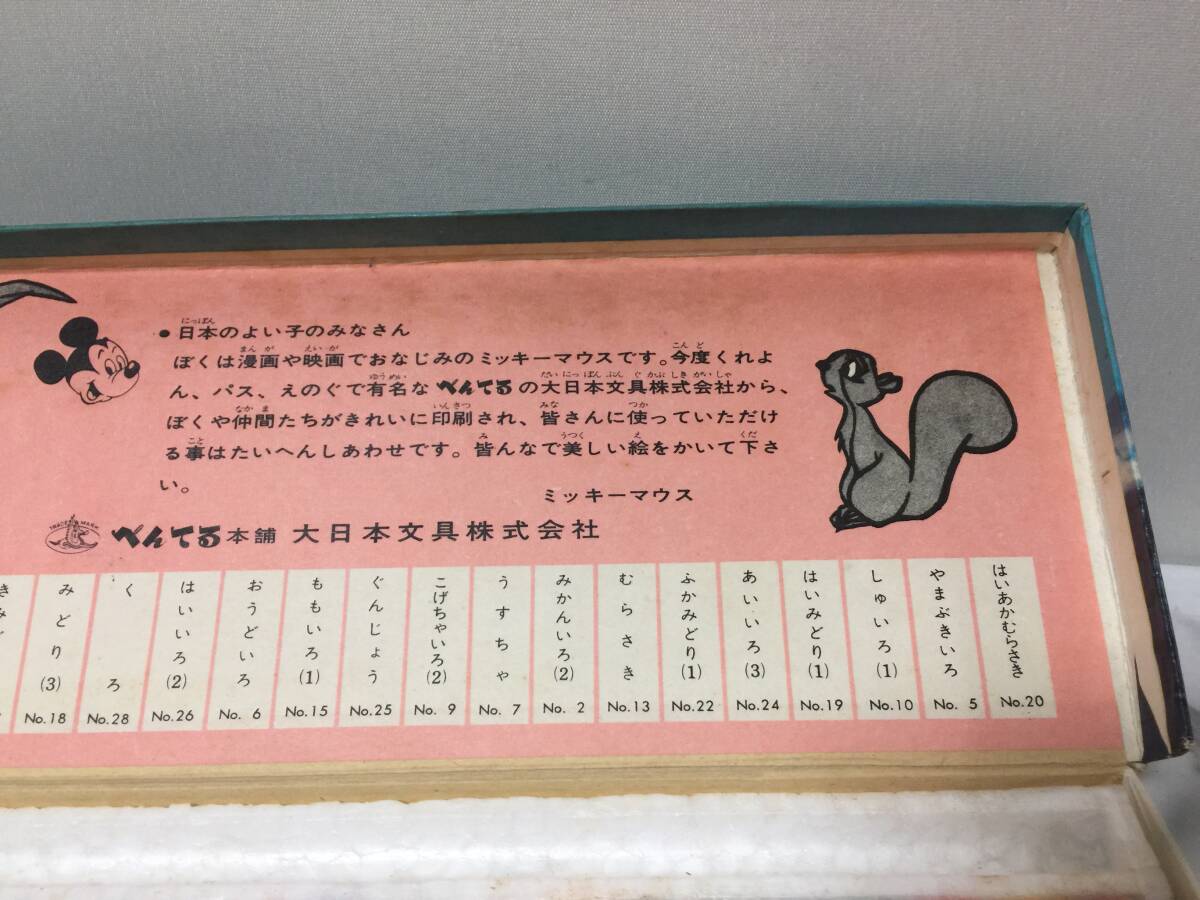 ● 日本のよい子のみなさん
ぼくは漫画や映画でおなじみのミッキーマウスです。今度くれよ
ん、パス、えのぐで有名なぺんてるの大日本文具株式会社から、
ぼくや仲間たちがきれいに印刷され、皆さんに使っていただけ
る事はたいへんしあわせです。皆んなで美しい絵をかいて下さ
い。
ミッキーマウス
TRADE MARK
ぺんてる本舗 大日本文具株式会社
みどり(3) No.18
くろ No.28
はいいろ(2) No.26
おうどいろ No. 6
ももいろ(1) No.15
ぐんじょう No.25
こげちゃいろ(2) No. 9
うすちゃ No. 7
みかんいろ(2) No. 2
むらさき No.13
ふかみどり(1) No.22
あいいろ(3) No.24
はいみどり(1) No.19
しゅいろ(1) No.10
やまぶきいろ No. 5
はいあかむらさき No.20